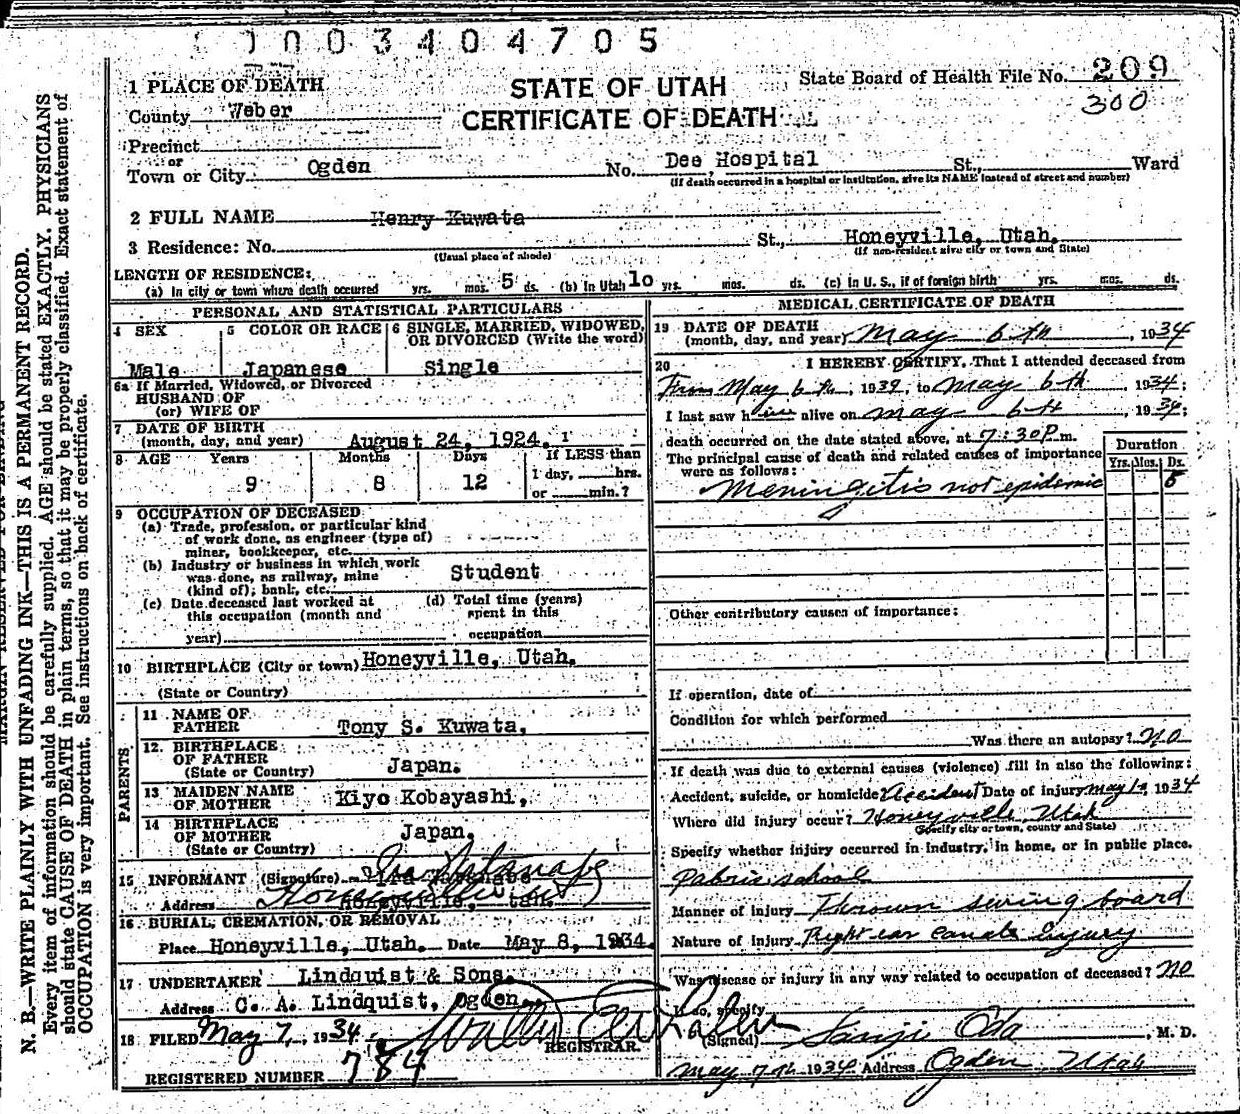 1003404705
State Board of Health File No. 209
300
STATE OF UTAH
CERTIFICATE OF DEATH
1 PLACE OF DEATH
County Weber
Precinct
or
Town or City Ogden No. Dee Hospital St., Ward
(If death occurred in a hospital or institution, give its NAME instead of street and number)
2 FULL NAME Henry Kuwata
3 Residence: No. St., Honeyville, Utah.
(Usual place of abode) (If non-resident give city or town and State)
LENGTH OF RESIDENCE:
(a) In city or town where death occurred yrs. mos. 5 ds. (b) In Utah 10 yrs. mos. ds. (c) In U. S., if of foreign birth yrs. mos. ds.
PERSONAL AND STATISTICAL PARTICULARS
4 SEX 5 COLOR OR RACE 6 SINGLE, MARRIED, WIDOWED, OR DIVORCED (Write the word)
Male Japanese Single
6a If Married, Widowed, or Divorced
HUSBAND OF
(or) WIFE OF
7 DATE OF BIRTH
(month, day, and year) August 24, 1924.
8 AGE Years Months Days If LESS than
1 day, hrs.
9 8 12 or min.?
9 OCCUPATION OF DECEASED
(a) Trade, profession, or particular kind
of work done, as engineer (type of)
miner, bookkeeper, etc.
(b) Industry or business in which work
was done, as railway, mine
(kind of); bank, etc. Student
(c) Date deceased last worked at
this occupation (month and
year)
(d) Total time (years)
spent in this
occupation
10 BIRTHPLACE (City or town) Honeyville, Utah.
(State or Country)
PARENTS
11 NAME OF
FATHER Tony S. Kuwata,
12 BIRTHPLACE
OF FATHER
(State or Country) Japan.
13 MAIDEN NAME
OF MOTHER Kiyo Kobayashi,
14 BIRTHPLACE
OF MOTHER
(State or Country) Japan.
15 INFORMANT (Signature)
Address Honeyville, Utah.
16 BURIAL, CREMATION, OR REMOVAL
Place Honeyville, Utah. Date May 8, 1934.
17 UNDERTAKER Lindquist & Sons.
Address C. A. Lindquist, Ogden.
18 FILED May 7, 1934.
REGISTRAR.
REGISTERED NUMBER 784
MEDICAL CERTIFICATE OF DEATH
19 DATE OF DEATH
(month, day, and year) May 6th, 1934
20 I HEREBY CERTIFY, That I attended deceased from
From May 6th, 1934, to May 6th, 1934;
I last saw him alive on May 6th, 1934;
death occurred on the date stated above, at 7:30 P. m.
The principal cause of death and related causes of importance
were as follows:
Duration
Yrs. Mos. Ds.
Meningitis not epidemic 5
Other contributory causes of importance:
If operation, date of
Condition for which performed
Was there an autopsy? No
If death was due to external causes (violence) fill in also the following:
Accident, suicide, or homicide? Accident Date of injury May 1, 1934
Where did injury occur? Honeyville, Utah
(Specify city or town, county and State)
Specify whether injury occurred in industry, in home, or in public place.
school
Manner of Injury Thrown swing board
Nature of Injury Right ear canal Injury
Was disease or injury in any way related to occupation of deceased? No
If so, specify
(Signed) Sanji Oda, M. D.
May 7th 1934 Address Ogden Utah
N. B.—WRITE PLAINLY WITH UNFADING INK—THIS IS A PERMANENT RECORD.
Every item of information should be carefully supplied. AGE should be stated EXACTLY. PHYSICIANS
should state CAUSE OF DEATH in plain terms, so that it may be properly classified. Exact statement of
OCCUPATION is very important. See instructions on back of certificate.